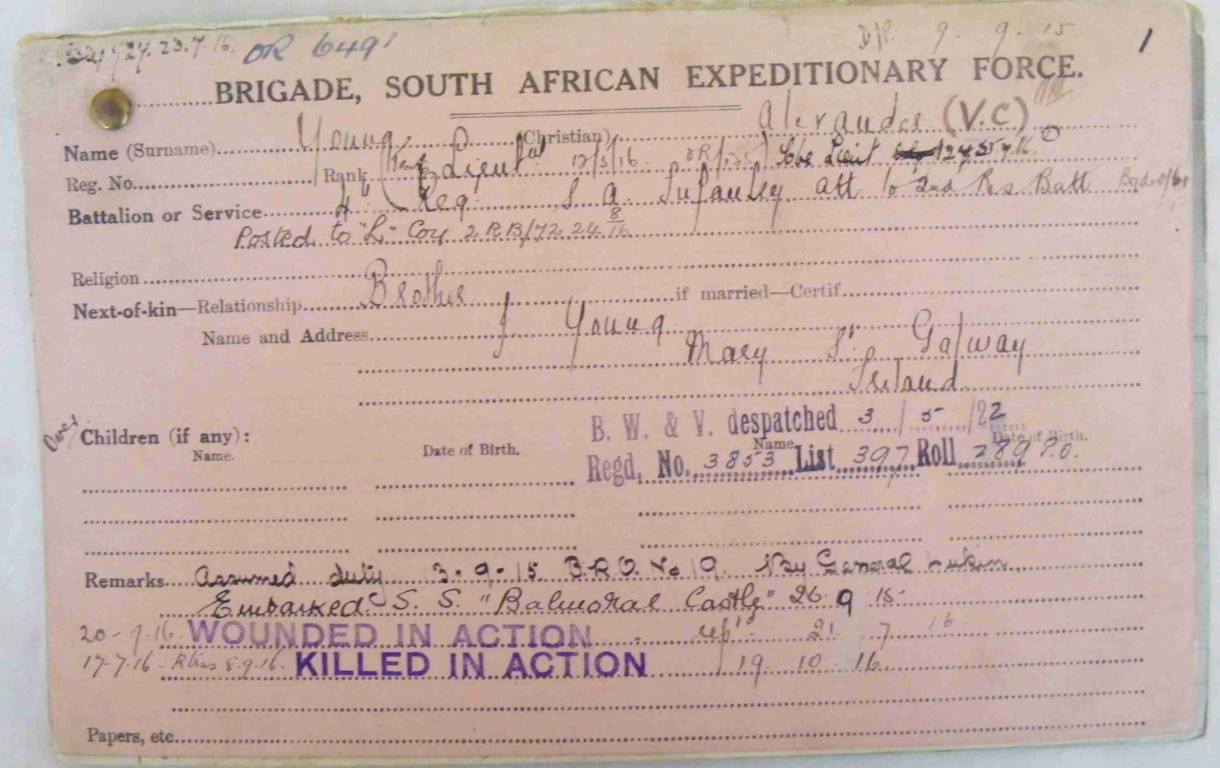 23.7.16. OR 6491 9.9.15 1
BRIGADE, SOUTH AFRICAN EXPEDITIONARY FORCE.
Name (Surname) Young (Christian) Alexander (V.C)
Reg. No. Rank Lieut 12/5/16
Battalion or Service 4 Reg S A Infantry att to 2nd Res Batt
Posted to "L" Coy 2 RB/72 24 8/16
Religion
Next-of-kin—Relationship Brother if married—Certif.
Name and Address J Young
Mary St Galway
Ireland
Children (if any):
Name. Date of Birth. Name. Date of Birth.
B. W. & V. despatched 3/5/22
Regd. No. 3853 List 397 Roll
Remarks Assumed duty 3-9-15 B.R.O. No 19. Bry General Lukin.
Embarked S. S. "Balmoral Castle" 26 9 15
20-7-16 WOUNDED IN ACTION 21 7 16
17-7-16 8.9.16. KILLED IN ACTION 19 10 16
Papers, etc.